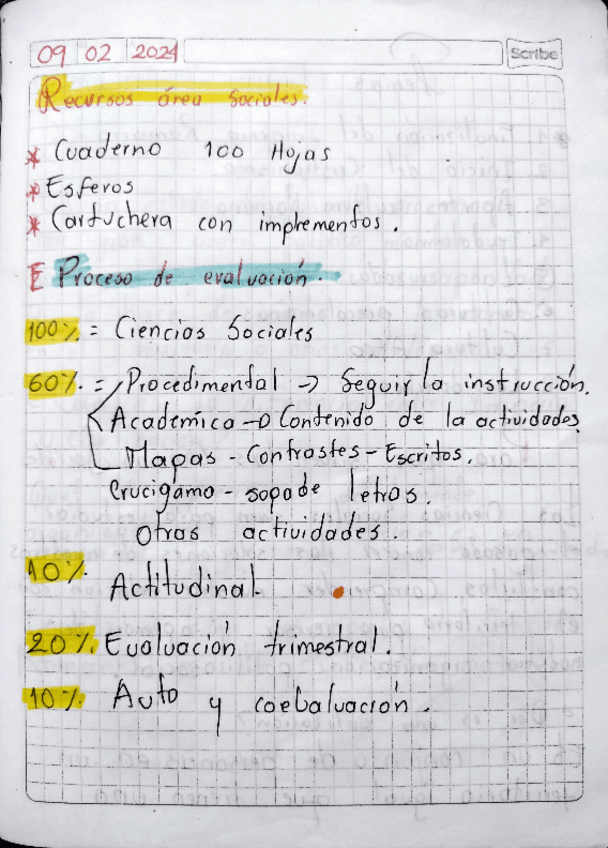 09 02 2024 Scribe
Recursos área Sociales.
* Cuaderno 100 Hojas
* Esferos
* Cartuchera con implementos.
E Proceso de evaluación.
100% = Ciencias Sociales
60% = Procedimental → Seguir la instrucción.
Academica → Contenido de la actividades.
Mapas - Contrastes - Escritos.
Crucigamo - sopa de letras.
Otras actividades.
10% Actitudinal.
20% Evaluación trimestral.
10% Auto y coebaluación.